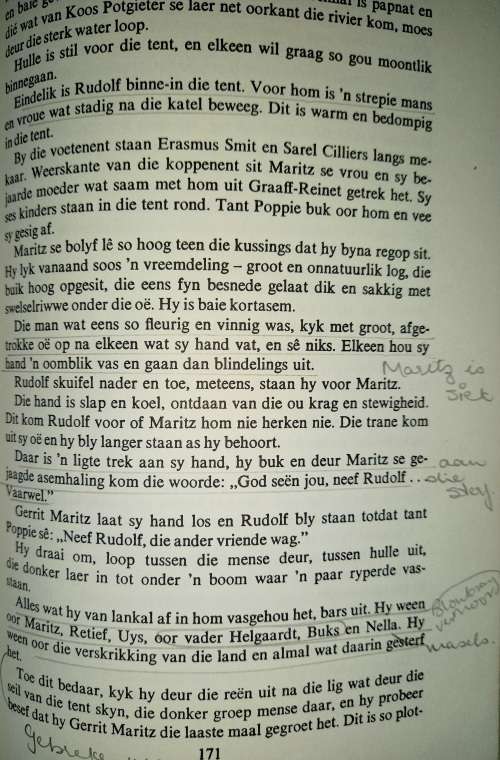 is papnat en
dié wat van Koos Potgieter se laer net oorkant die rivier kom, moes
deur die sterk water loop.
Hulle is stil voor die tent, en elkeen wil graag so gou moontlik
binnegaan.
Eindelik is Rudolf binne-in die tent. Voor hom is 'n strepie mans
en vroue wat stadig na die katel beweeg. Dit is warm en bedompig
in die tent.
By die voetenent staan Erasmus Smit en Sarel Cilliers langs me-
kaar. Weerskante van die koppenent sit Maritz se vrou en sy be-
jaarde moeder wat saam met hom uit Graaff-Reinet getrek het. Sy
ses kinders staan in die tent rond. Tant Poppie buk oor hom en vee
sy gesig af.
Maritz se bolyf lê so hoog teen die kussings dat hy byna regop sit.
Hy lyk vanaand soos 'n vreemdeling – groot en onnatuurlik log, die
buik hoog opgesit, die eens fyn besnede gelaat dik en sakkig met
swelselriwwe onder die oë. Hy is baie kortasem.
Die man wat eens so fleurig en vinnig was, kyk met groot, afge-
trokke oë op na elkeen wat sy hand vat, en sê niks. Elkeen hou sy
hand 'n oomblik vas en gaan dan blindelings uit.
Maritz is
siek
Rudolf skuifel nader en toe, meteens, staan hy voor Maritz.
Die hand is slap en koel, ontdaan van die ou krag en stewigheid.
Dit kom Rudolf voor of Maritz hom nie herken nie. Die trane kom
uit sy oë en hy bly langer staan as hy behoort.
Daar is 'n ligte trek aan sy hand, hy buk en deur Maritz se ge-
jaagde asemhaling kom die woorde: „God seën jou, neef Rudolf . .
Vaarwel."
aan
die
Gerrit Maritz laat sy hand los en Rudolf bly staan totdat tant
Poppie sê: „Neef Rudolf, die ander vriende wag."
Hy draai om, loop tussen die mense deur, tussen hulle uit,
die donker laer in tot onder 'n boom waar 'n paar ryperde vas-
staan.
Alles wat hy van lankal af in hom vasgehou het, bars uit. Hy ween
oor Maritz, Retief, Uys, oor vader Helgaardt, Buks en Nella. Hy
ween oor die verskrikking van die land en almal wat daarin gesterf
het.
masels.
Toe dit bedaar, kyk hy deur die reën uit na die lig wat deur die
seil van die tent skyn, die donker groep mense daar, en hy probeer
besef dat hy Gerrit Maritz die laaste maal gegroet het. Dit is so plot-
171